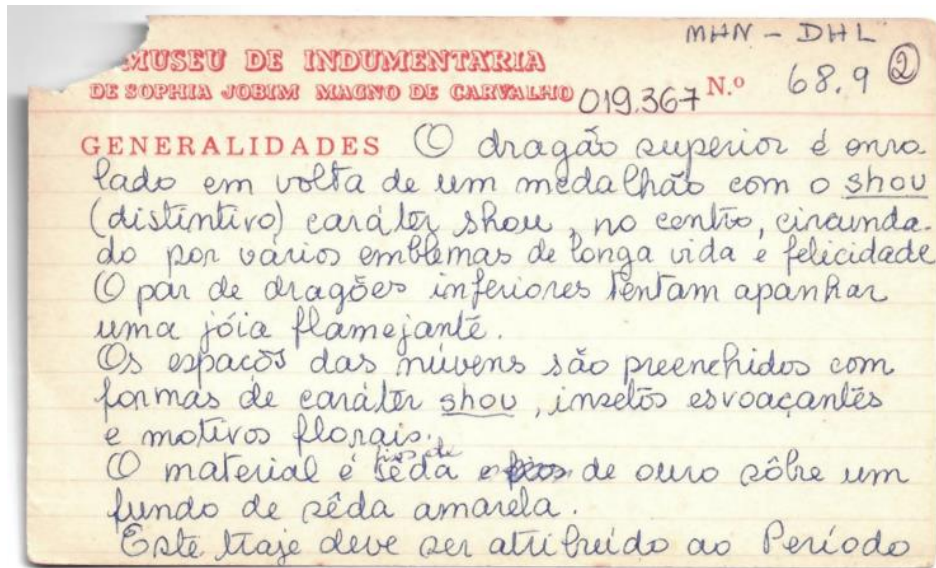 MHN - DHL
MUSEU DE INDUMENTARIA
DE SOPHIA JOBIM MAGNO DE CARVALHO 019.367 N.º 68.9 ②
GENERALIDADES O dragão superior é enro-
lado em volta de um medalhão com o shou
(distintivo) caráter shou, no centro, circunda-
do por vários emblemas de longa vida e felicidade
O par de dragões inferiores tentam apanhar
uma jóia flamejante.
Os espaços das núvens são preenchidos com
formas de caráter shou, insetos esvoaçantes
e motivos florais.
O material é fios de sêda e fios de ouro sôbre um
fundo de sêda amarela.
Este traje deve ser atribuído ao Período